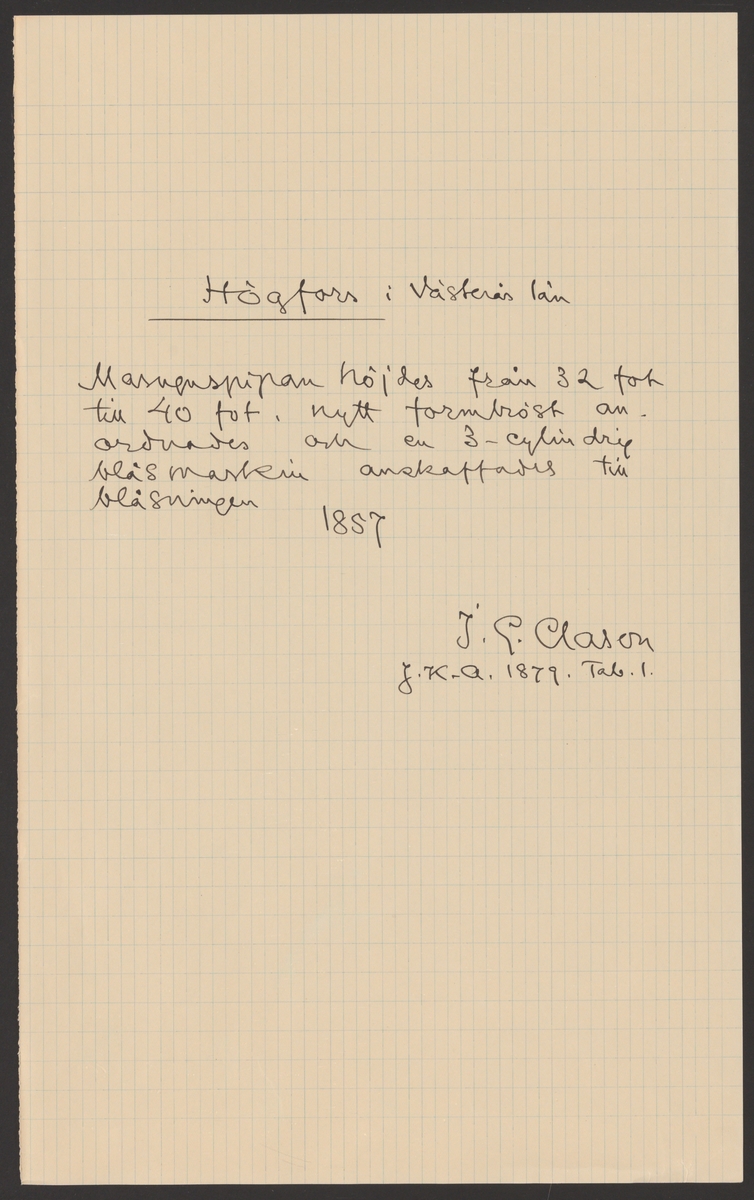 Högfors i Västerås län
Masugnspipan höjdes från 32 fot
till 40 fot, nytt formbröst an-
ordnades och en 3-cylindrig
blåsmaskin anskaffades till
blåsningen
1857
J. G. Clason
J.K.A. 1879. Tab. 1.